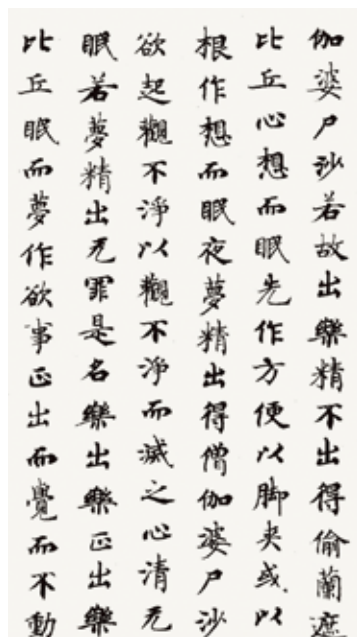 伽婆尸沙若故出樂精不出得偷蘭遮
比丘心想而眠先作方便以脚夾或以
根作想而眠夜夢精出得僧伽婆尸沙
欲起觀不淨以觀不淨而滅之心清无
眠若夢精出无罪是名樂出樂正出樂
比丘眠而夢作欲事正出而覺而不動